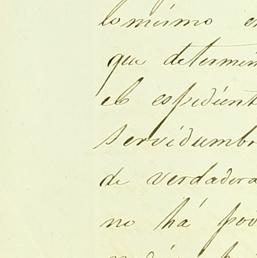 lo mismo en
que determin
el espedient
servidumbr
de verdadera
no há pod